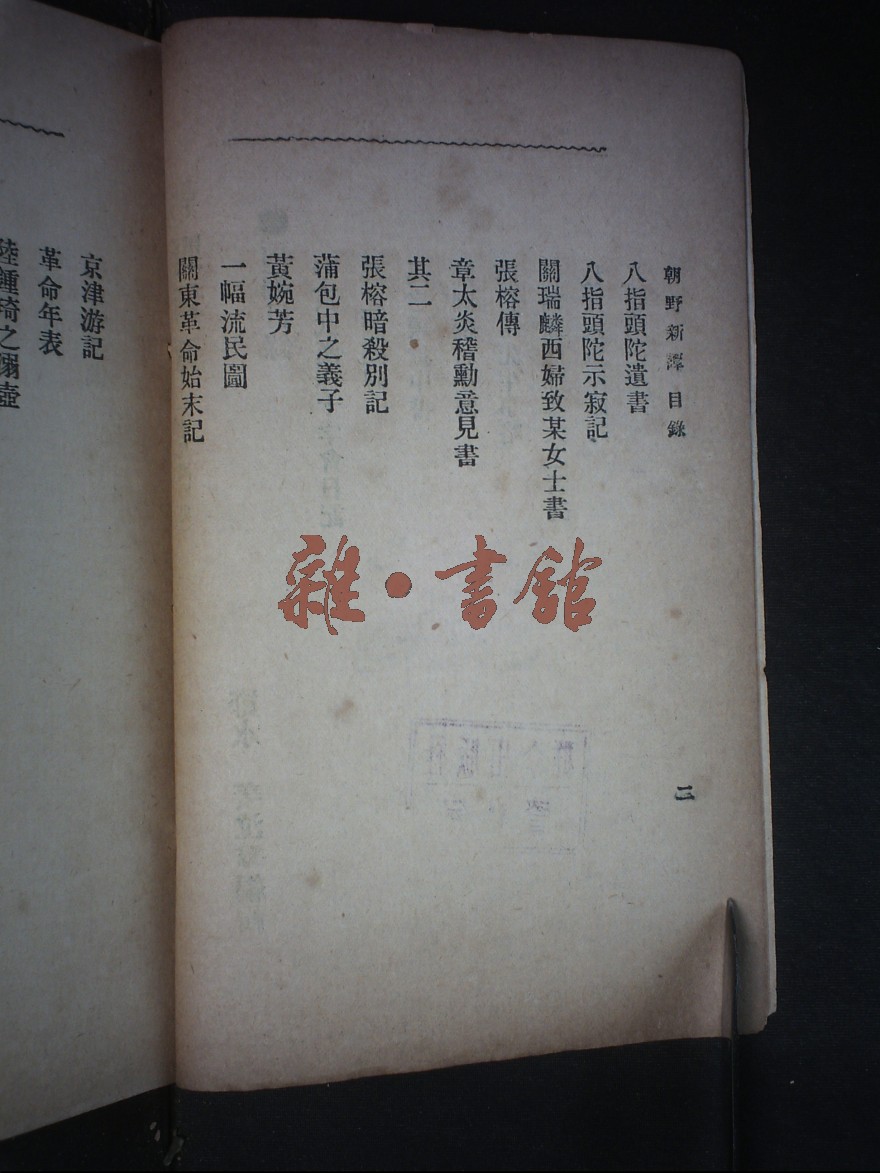 朝野新譚 目錄
八指頭陀遺書
八指頭陀示寂記
關瑞麟西婦致某女士書
張榕傳
章太炎稽勳意見書
其二
張榕暗殺別記
蒲包中之義子
黃婉芳
一幅流民圖
關東革命始末記
二
京津游記
革命年表
陸鍾琦之
雜·書館